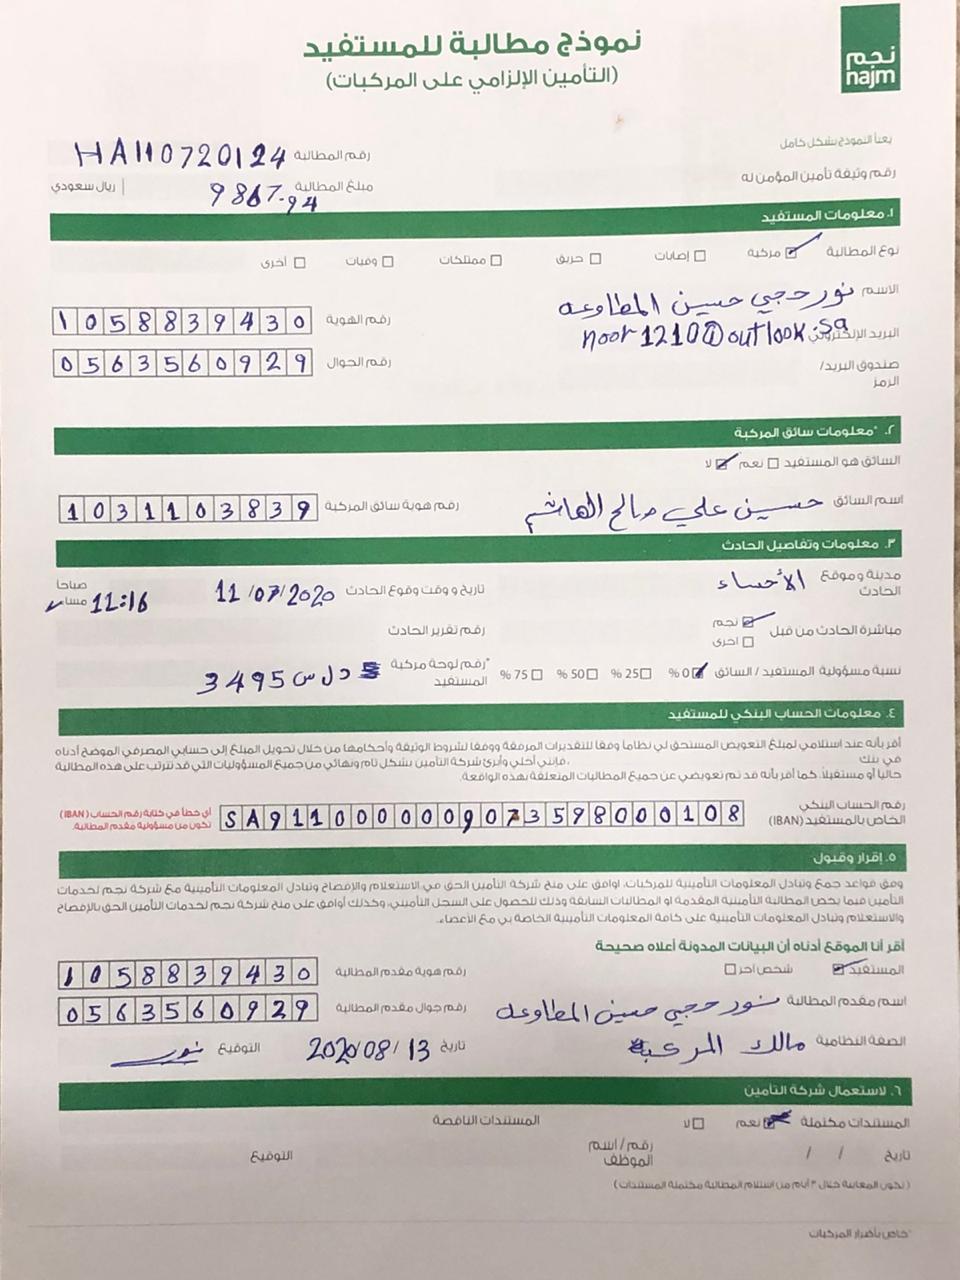 نموذج مطالبة للمستفيد
(التأمين الإلزامي على المركبات)
نجم
najm
يعبأ النموذج بشكل كامل
رقم المطالبة HA110720124
رقم وثيقة تأمين المؤمن له
مبلغ المطالبة 9867.94 ريال سعودي
١. معلومات المستفيد
نوع المطالبة مركبة إصابات حريق ممتلكات وفيات أخرى
الاسم نور حجي حسين المطاوعه
رقم الهوية 1058839430
البريد الإلكتروني noor1210@outlook.sa
رقم الجوال 0563560929
صندوق البريد/
الرمز
٢. *معلومات سائق المركبة
السائق هو المستفيد نعم لا
اسم السائق حسين علي صالح الهاشم
رقم هوية سائق المركبة 1031103839
٣. معلومات وتفاصيل الحادث
مدينة وموقع الحادث الأحساء
تاريخ و وقت وقوع الحادث 11/07/2020 11:16 صباحا مساء
مباشرة الحادث من قبل نجم اخرى
رقم تقرير الحادث
نسبة مسؤولية المستفيد / السائق 0% 25% 50% 75%
*رقم لوحة مركبة المستفيد د ل س 3495
٤. معلومات الحساب البنكي للمستفيد
أقر بأنه عند استلامي لمبلغ التعويض المستحق لي نظاماً وفقا للتقديرات المرفقة ووفقا لشروط الوثيقة وأحكامها من خلال تحويل المبلغ إلى حسابي المصرفي الموضح أدناه
في بنك ، فإنني أخلي وأبرئ شركة التأمين بشكل تام ونهائي من جميع المسؤوليات التي قد تترتب على هذه المطالبة
حالياً أو مستقبلاً. كما أقر بأنه قد تم تعويضي عن جميع المطالبات المتعلقة بهذه الواقعة.
رقم الحساب البنكي
الخاص بالمستفيد (IBAN) SA91100000009073598000108
أي خطأ في كتابة رقم الحساب (IBAN)
تكون من مسؤولية مقدم المطالبة.
٥. إقرار وقبول
وفق قواعد جمع وتبادل المعلومات التأمينية للمركبات، اوافق على منح شركة التأمين الحق في الاستعلام والإفصاح وتبادل المعلومات التأمينية مع شركة نجم لخدمات
التأمين فيما يخص المطالبة التأمينية المقدمة او المطالبات السابقة وذلك للحصول على السجل التأميني، وكذلك أوافق على منح شركة نجم لخدمات التأمين الحق بالإفصاح
والاستعلام وتبادل المعلومات التأمينية على كافة المعلومات التأمينية الخاصة بي مع الأعضاء.
أقر أنا الموقع أدناه أن البيانات المدونة أعلاه صحيحة
المستفيد شخص آخر
رقم هوية مقدم المطالبة 1058839430
اسم مقدم المطالبة نور حجي حسين المطاوعه
رقم جوال مقدم المطالبة 0563560929
الصفة النظامية مالك المركبة
تاريخ 2020/08/13
التوقيع نور
٦. لاستعمال شركة التأمين
المستندات مكتملة نعم لا
المستندات الناقصة
تاريخ / /
رقم / اسم الموظف
التوقيع
(تكون المعاينة خلال ٣ أيام من استلام المطالبة مكتملة المستندات)
*خاص بأضرار المركبات